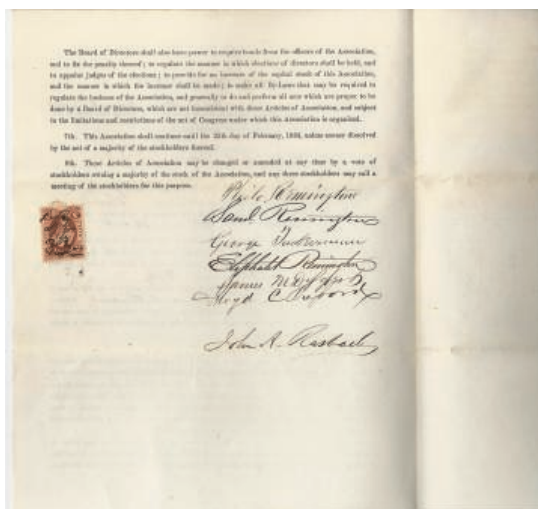 The Board of Directors shall also have power to require bonds from the officers of the Association,
and to fix the penalty thereof; to regulate the manner in which elections of directors shall be held, and
to appoint judges of the elections; to provide for an increase of the capital stock of this Association,
and the manner in which the increase shall be made; to make all By-laws that may be required to
regulate the business of the Association, and generally to do and perform all acts which are proper to be
done by a Board of Directors, which are not inconsistent with these Articles of Association, and subject
to the limitations and restrictions of the act of Congress under which this Association is organized.
7th. This Association shall continue until the day of February, unless sooner dissolved
by the act of a majority of the stockholders thereof.
8th. These Articles of Association may be changed or amended at any time by a vote of
stockholders owning a majority of the stock of the Association, and any three stockholders may call a
meeting of the stockholders for this purpose.
Philo Remington
Saml Remington
George
Eliphalet Remington
James
Floyd C
John A. Rasbach